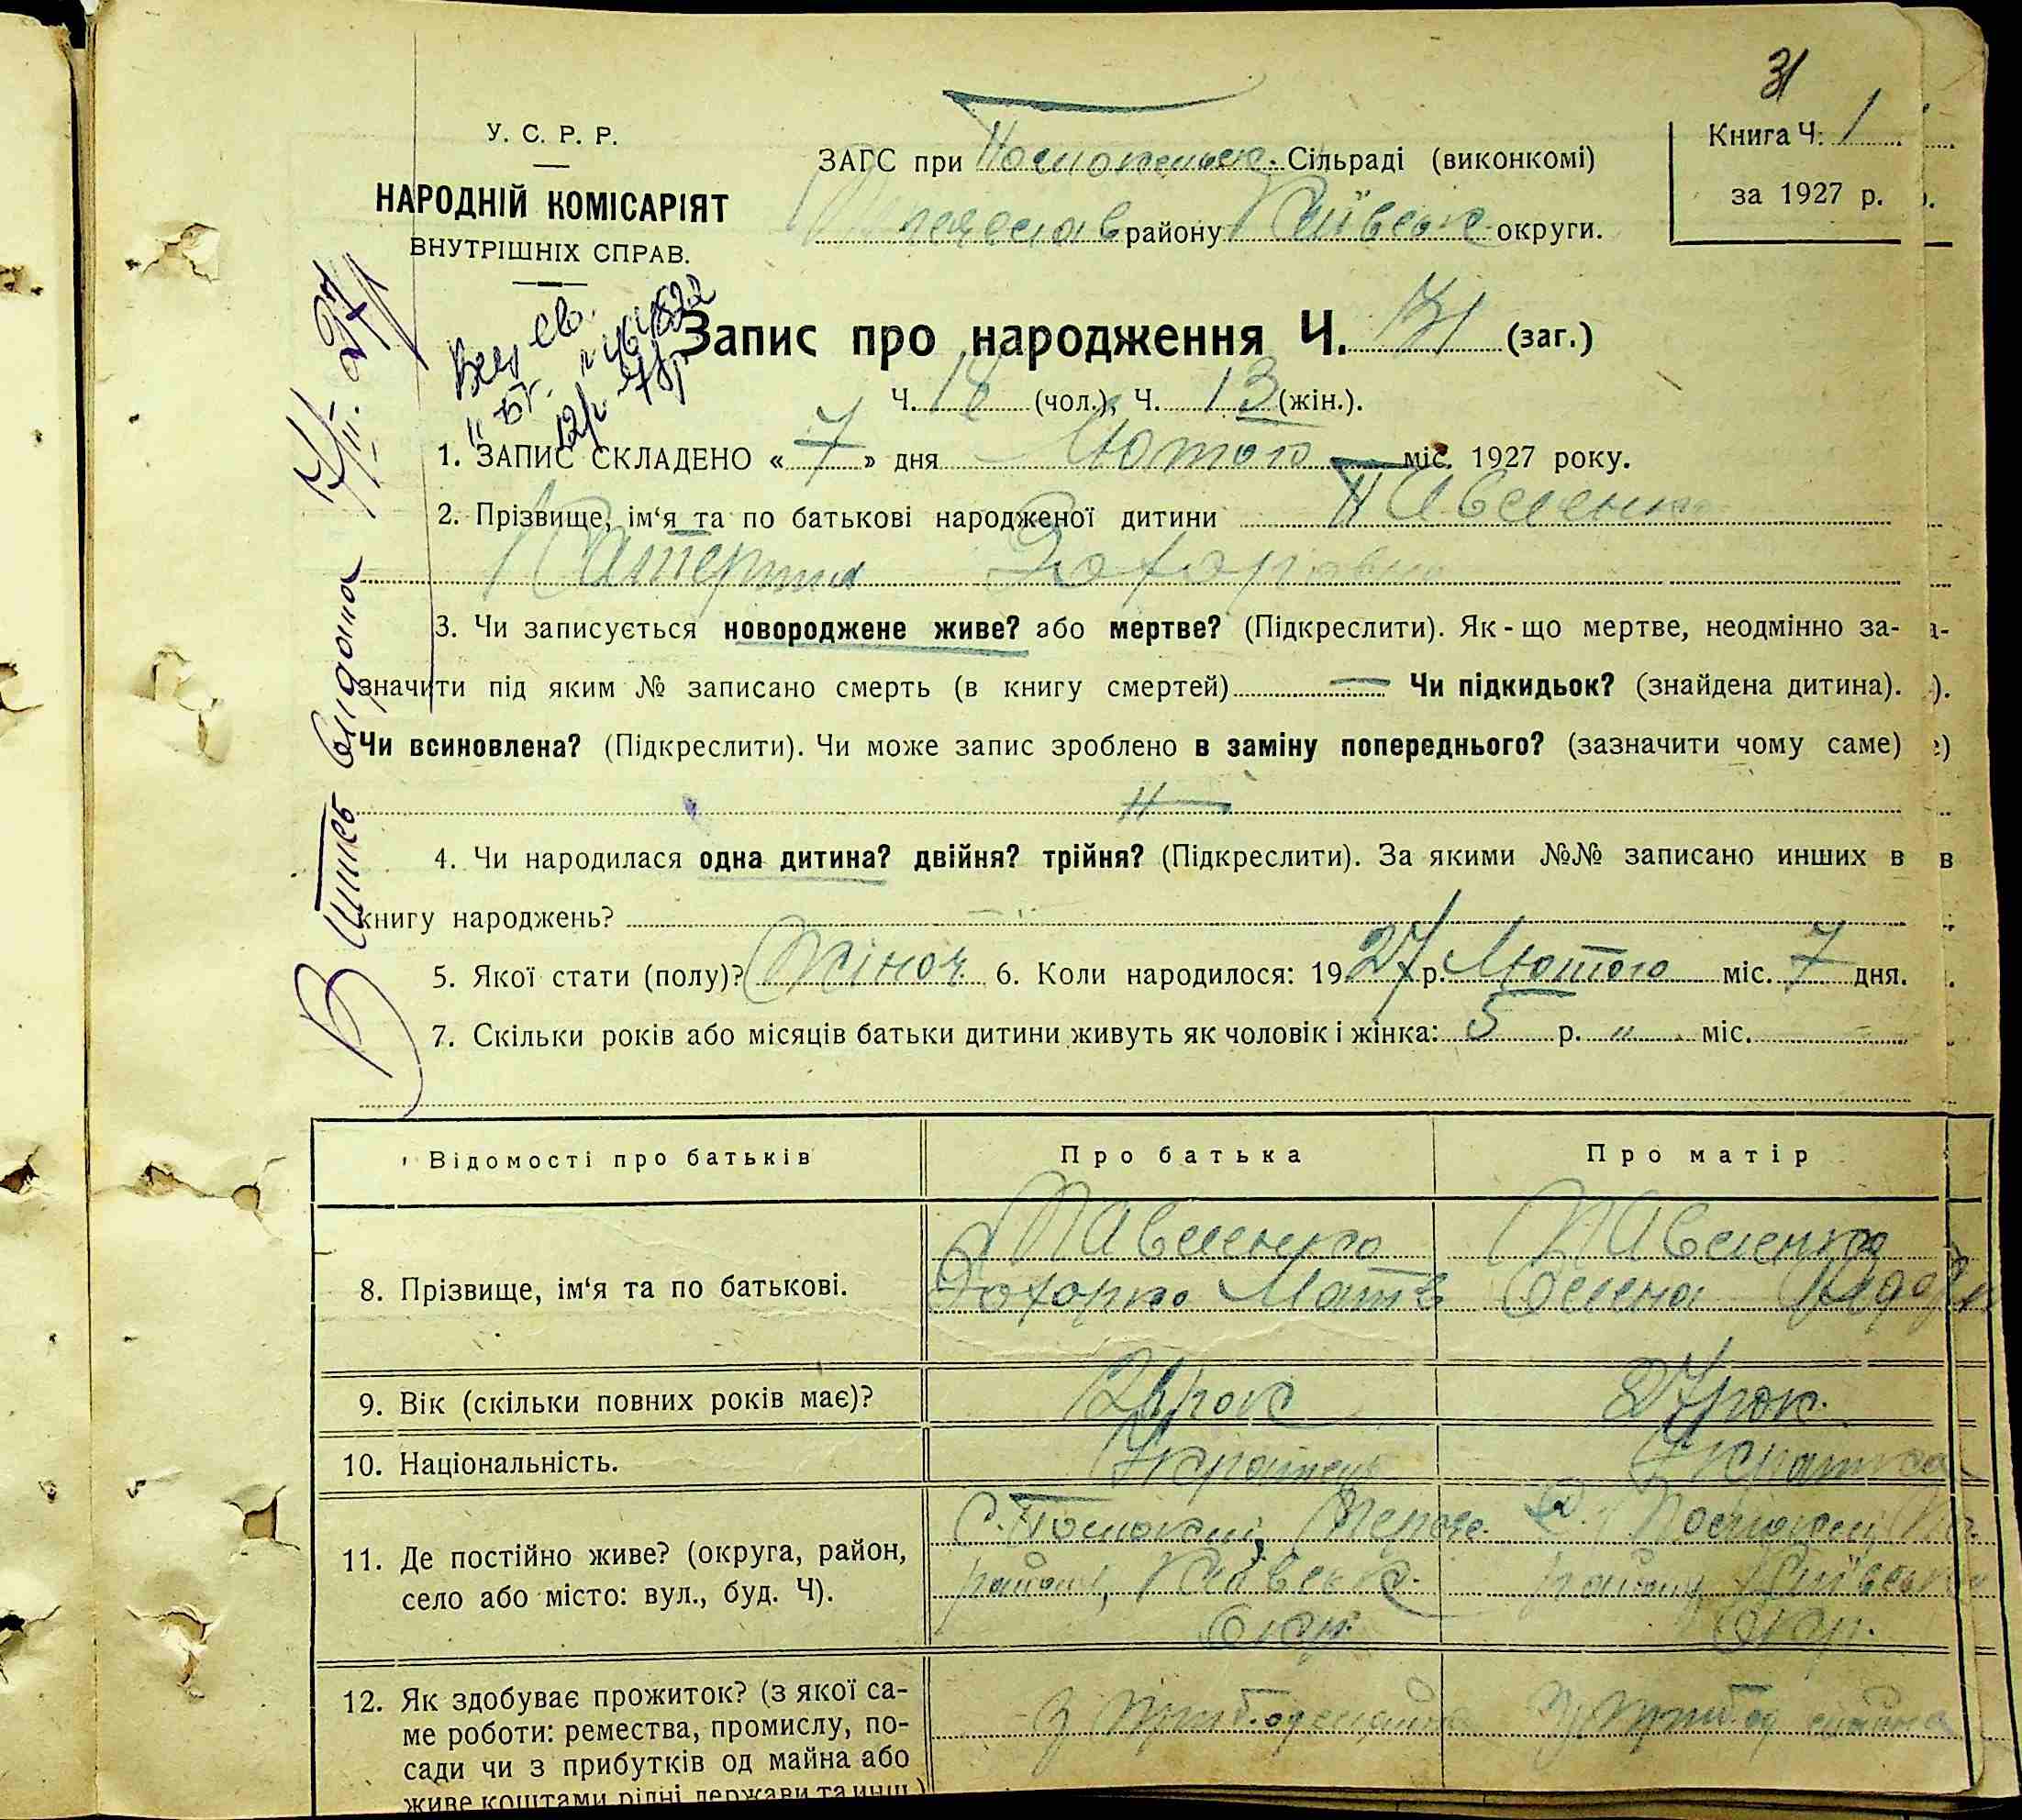 31
У. С. Р. Р.
НАРОДНІЙ КОМІСАРІЯТ
ВНУТРІШНІХ СПРАВ.
ЗАГС при Сільраді (виконкомі)
району Київськ. округи.
Книга Ч. 1
за 1927 р.
Запис про народження Ч. 31 (заг.)
Ч. 18 (чол.), Ч. 13 (жін.).
1. ЗАПИС СКЛАДЕНО «7» дня Лютого міс. 1927 року.
2. Прізвище, ім'я та по батькові народженої дитини Павленко
Катерина Захаровна
3. Чи записується новороджене живе? або мертве? (Підкреслити). Як-що мертве, неодмінно за-
значити під яким № записано смерть (в книгу смертей) — Чи підкидьок? (знайдена дитина).
Чи всиновлена? (Підкреслити). Чи може запис зроблено в заміну попереднього? (зазначити чому саме)
4. Чи народилася одна дитина? двійня? трійня? (Підкреслити). За якими №№ записано инших в
книгу народжень?
5. Якої стати (полу)? Жіноч. 6. Коли народилося: 1927 р. Лютого міс. 7 дня.
7. Скільки років або місяців батьки дитини живуть як чоловік і жінка: 5 р. " міс.
Витяг видано
Відомості про батьків Про батька Про матір
8. Прізвище, ім'я та по батькові.
Павленко Павленко
Захарко Матв Олена
9. Вік (скільки повних років має)? рок 27 рок.
10. Національність. Українець Українка
11. Де постійно живе? (округа, район,
село або місто: вул., буд. Ч).
району, Київськ. району Київськ
Окр. Окр.
12. Як здобуває прожиток? (з якої са-
ме роботи: ремества, промислу, по-
сади чи з прибутків од майна або
живе коштами рідні держави та инш.)